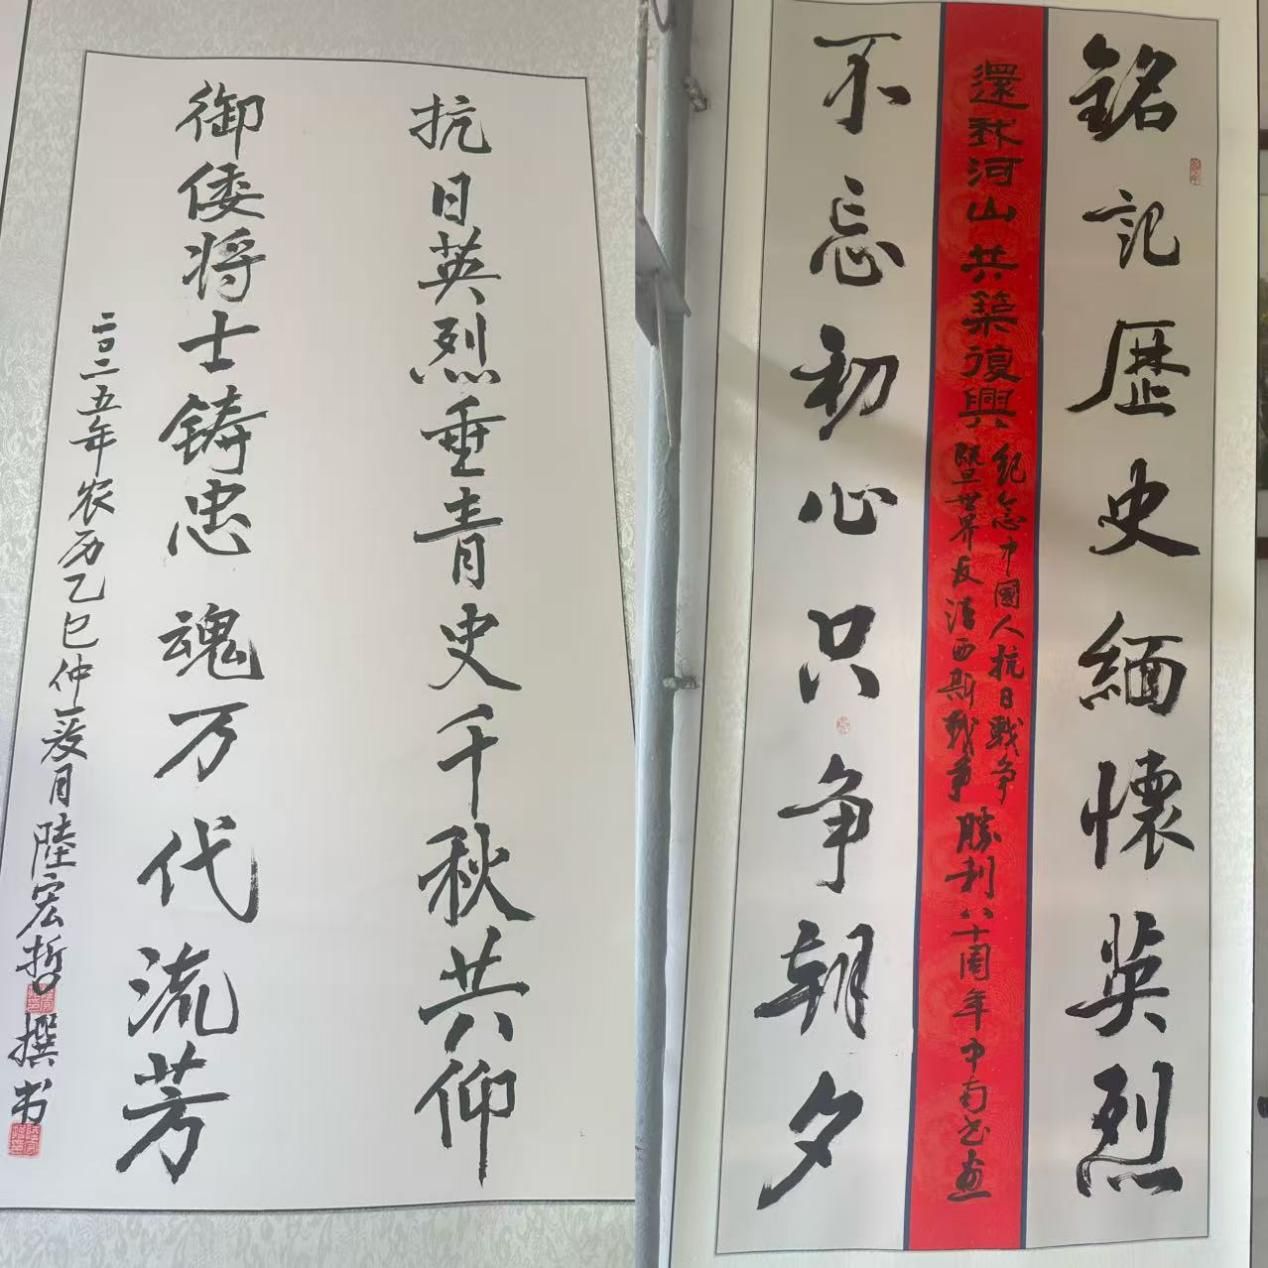 抗日英烈垂青史千秋共仰
御倭将士铸忠魂万代流芳
二〇二五年农历乙巳仲夏月陸宏哲撰书
銘記歷史緬懷英烈
還我河山共築復興
纪念中國人抗日戰争
暨世界反法西斯战争
勝利八十周年中南书画
不忘初心只争朝夕